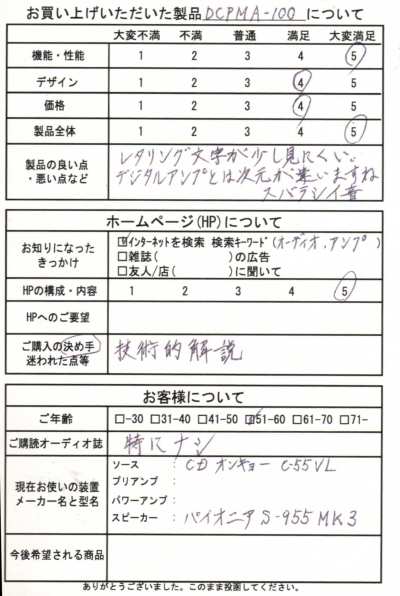 お買い上げいただいた製品 DCPMA-100 について
大変不満 不満 普通 満足 大変満足
機能・性能 1 2 3 4 5
デザイン 1 2 3 4 5
価格 1 2 3 4 5
製品全体 1 2 3 4 5
製品の良い点
・悪い点など
レタリング文字が少し見にくい。
デジタルアンプとは次元が違いますね
スバラシイ音
ホームページ(HP)について
お知りになった
きっかけ
☑インターネットを検索 検索キーワード(オーディオ、アンプ)
□雑誌( )の広告
□友人/店( )に聞いて
HPの構成・内容 1 2 3 4 5
HPへのご要望
ご購入の決め手
迷われた点等
技術的解説
お客様について
ご年齢 □-30 □31-40 □41-50 ☑51-60 □61-70 □71-
ご購読オーディオ誌 特にナシ
現在お使いの装置
メーカー名と型名
ソース : CD オンキョー C-55VL
プリアンプ :
パワーアンプ :
スピーカー : パイオニア S-955 MK3
今後希望される商品
ありがとうございました。このまま投函してください。